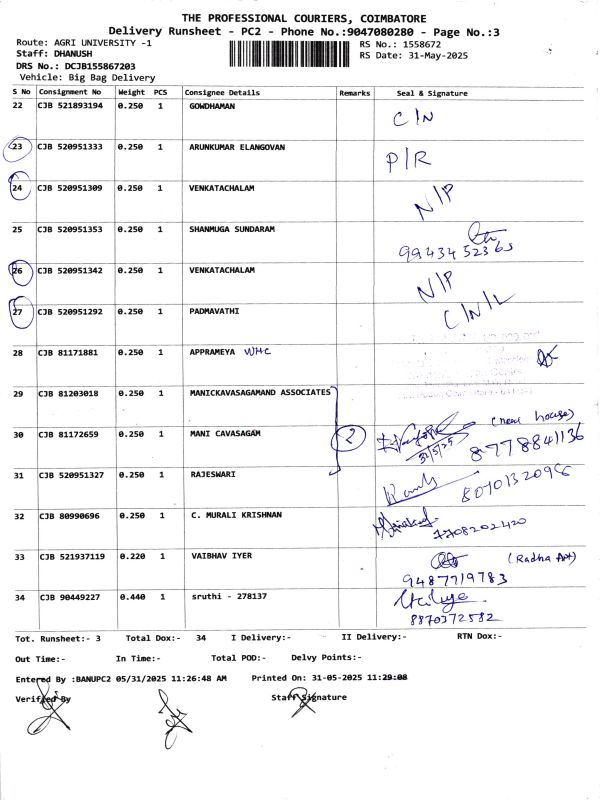 THE PROFESSIONAL COURIERS, COIMBATORE
Delivery Runsheet - PC2 - Phone No.:9047080280 - Page No.:3
Route: AGRI UNIVERSITY -1
RS No.: 1558672
Staff: DHANUSH
RS Date: 31-May-2025
DRS No.: DCJB155867203
Vehicle: Big Bag Delivery
S No Consignment No Weight PCS Consignee Details Remarks Seal & Signature
22 CJB 521893194 0.250 1 GOWDHAMAN C/N
23 CJB 520951333 0.250 1 ARUNKUMAR ELANGOVAN P/R
24 CJB 520951309 0.250 1 VENKATACHALAM N/P
25 CJB 520951353 0.250 1 SHANMUGA SUNDARAM
9943452365
26 CJB 520951342 0.250 1 VENKATACHALAM N/P
27 CJB 520951292 0.250 1 PADMAVATHI C/N/L
28 CJB 81171881 0.250 1 APPRAMEYA WHC
29 CJB 81203018 0.250 1 MANICKAVASAGAMAND ASSOCIATES
(new house)
30 CJB 81172659 0.250 1 MANI CAVASAGAM 2 31/5/25 8778841136
31 CJB 520951327 0.250 1 RAJESWARI
32 CJB 80990696 0.250 1 C. MURALI KRISHNAN
7708202420
33 CJB 521937119 0.220 1 VAIBHAV IYER (Radha Apt)
9487719783
34 CJB 90449227 0.440 1 sruthi - 278137
8870372582
Tot. Runsheet:- 3 Total Dox:- 34 I Delivery:- II Delivery:- RTN Dox:-
Out Time:- In Time:- Total POD:- Delvy Points:-
Entered By :BANUPC2 05/31/2025 11:26:48 AM Printed On: 31-05-2025 11:29:08
Verified By Staff Signature